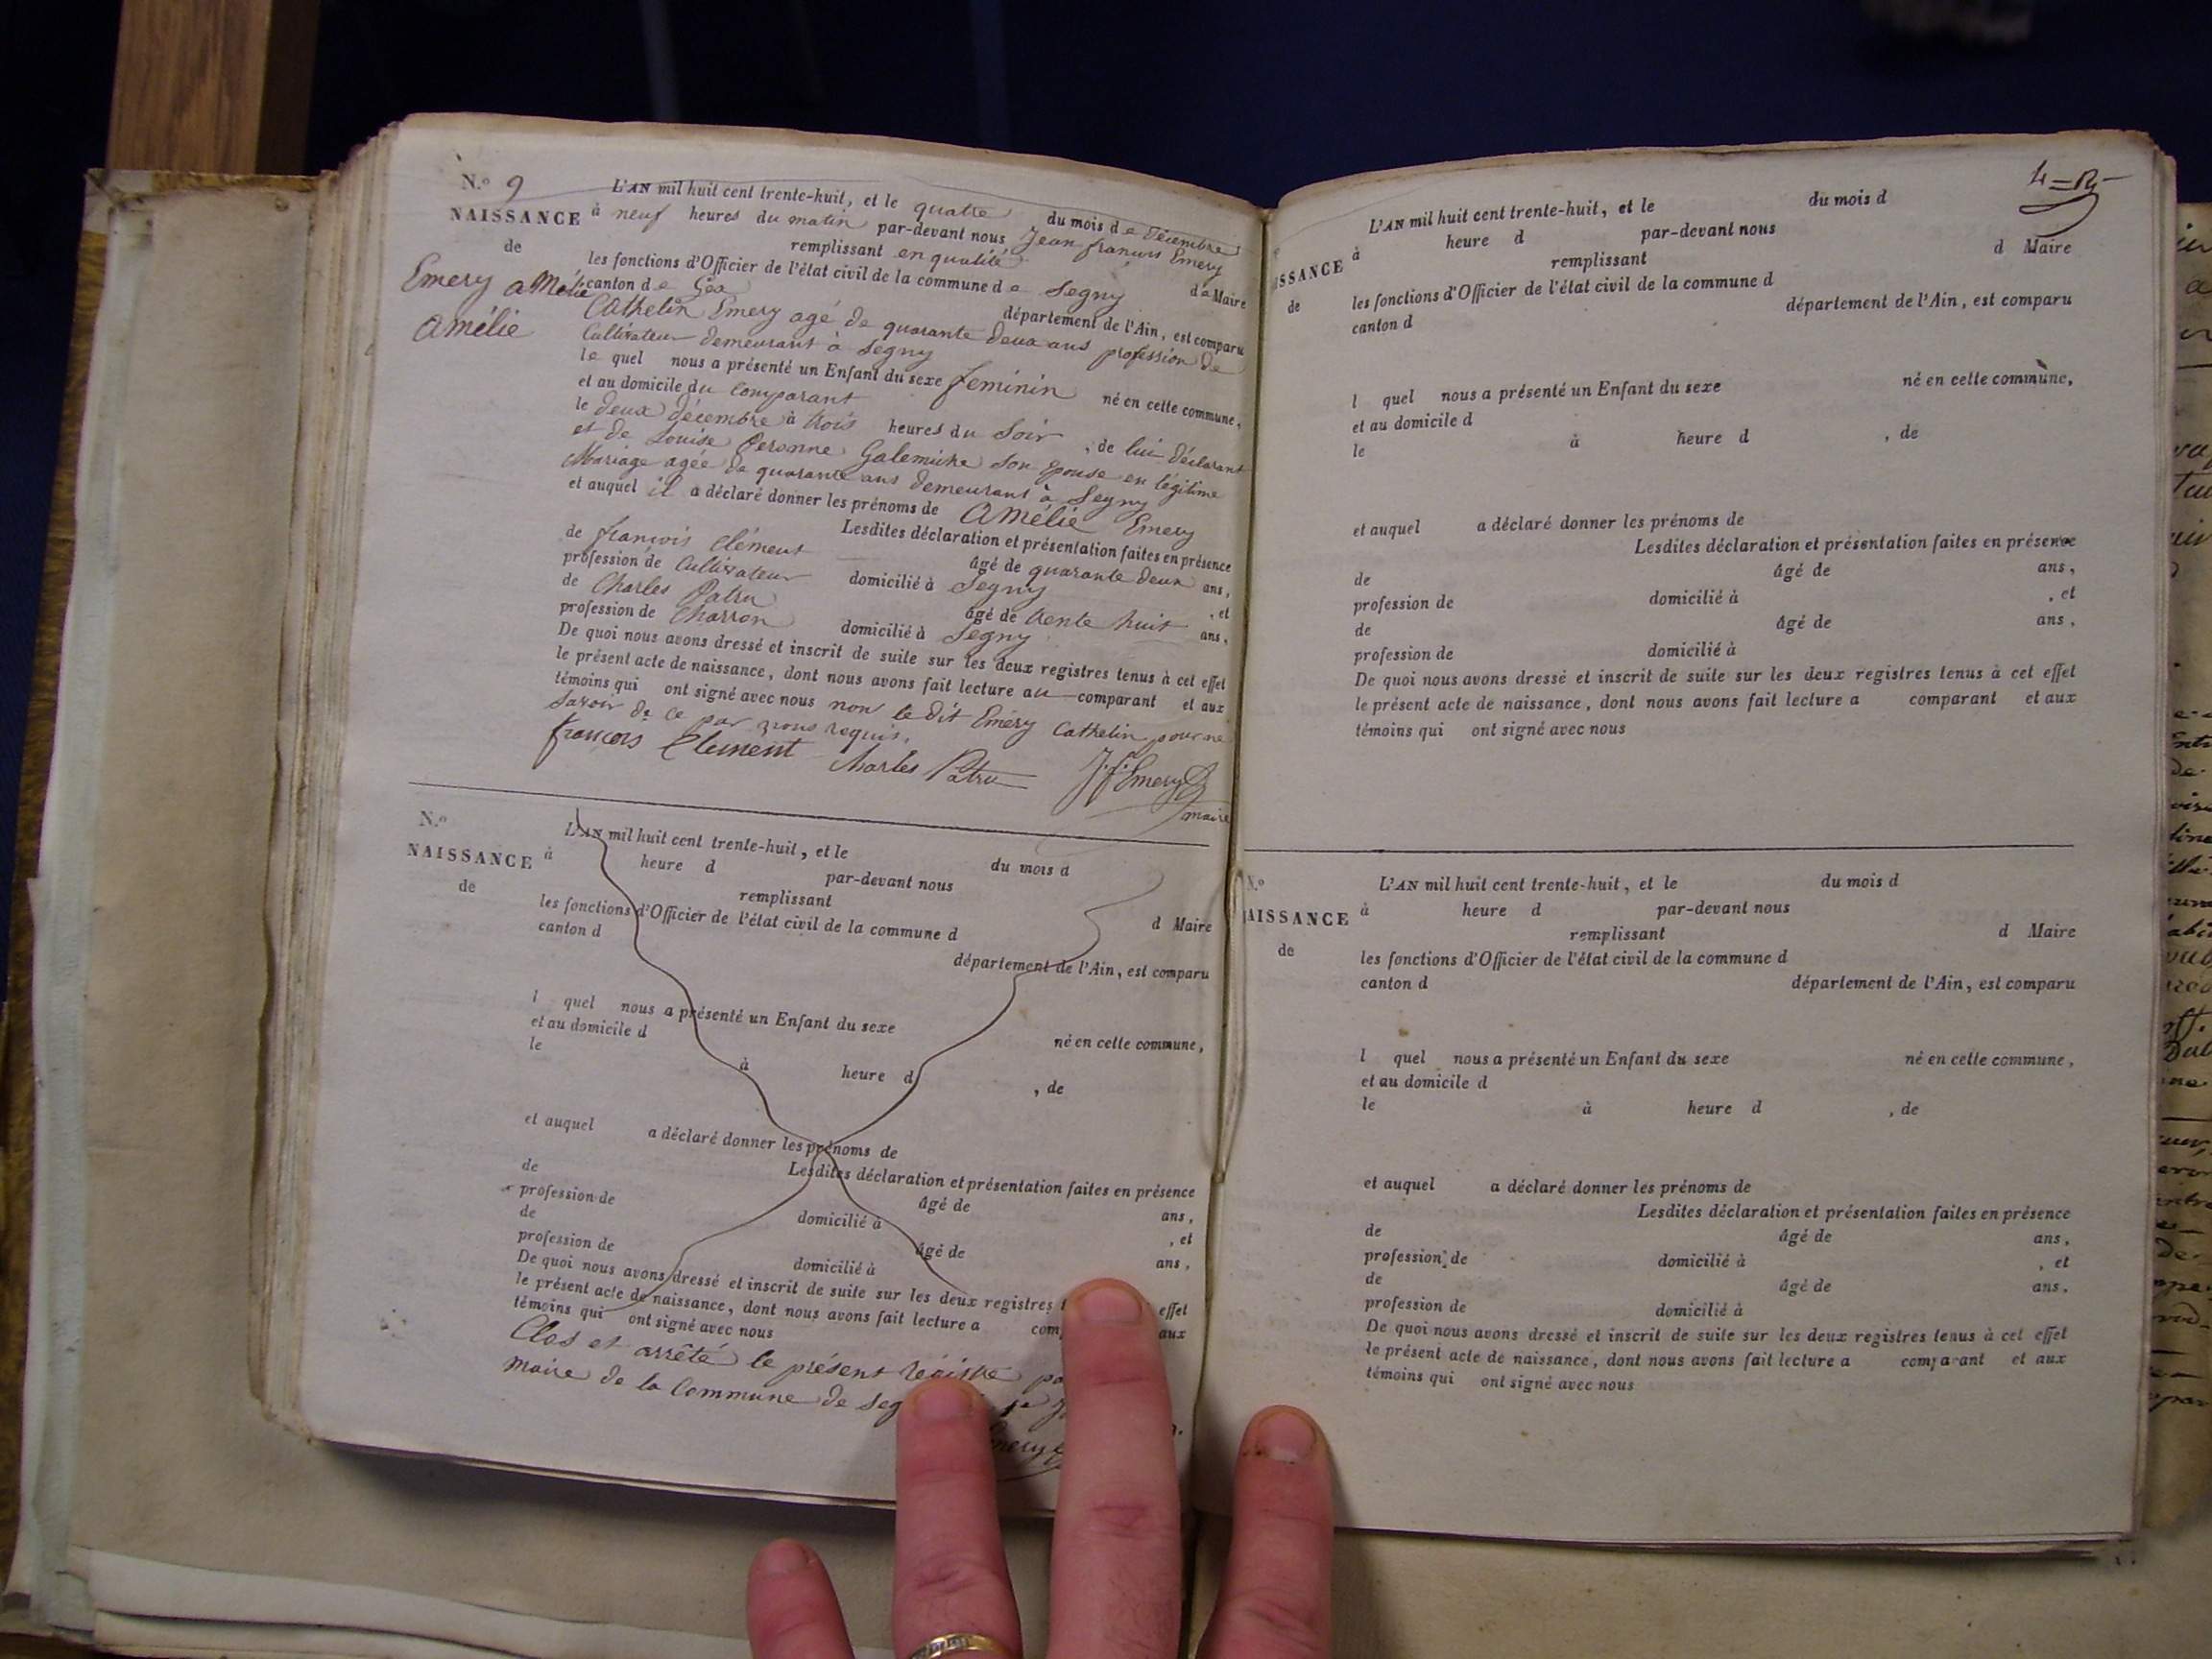 N.º 9
NAISSANCE
de
Emery amélie
Amélie
L'AN mil huit cent trente-huit, et le quatre du mois de Décembre
à neuf heures du matin par-devant nous Jean françois Emery
remplissant en qualité de Maire
les fonctions d'Officier de l'état civil de la commune de Segny
canton de Gex département de l'Ain, est comparu
Cathelin Emery agé de quarante deux ans profession de
Cultivateur demeurant à Segny
le quel nous a présenté un Enfant du sexe feminin né en cette commune,
et au domicile du comparant
le deux décembre à trois heures du Soir, de lui déclarant
et de Louise Peronne son épouse en légitime
Mariage agée de quarante ans demeurant à Segny
et auquel il a déclaré donner les prénoms de Amélie Emery
Lesdites déclaration et présentation faites en présence
de françois Clément âgé de quarante deux ans,
profession de Cultivateur domicilié à Segny, et
de Charles Patru âgé de trente huit ans,
profession de Charron domicilié à Segny
De quoi nous avons dressé et inscrit de suite sur les deux registres tenus à cet effet
le présent acte de naissance, dont nous avons fait lecture au comparant et aux
témoins qui ont signé avec nous non le dit Emery Cathelin pour ne
Savoir de ce par nous requis.
françois Clement Charles Patru J. f. Emery
maire
N.º
NAISSANCE
de
L'AN mil huit cent trente-huit, et le du mois d
à heure d par-devant nous
remplissant d Maire
les fonctions d'Officier de l'état civil de la commune d
canton d département de l'Ain, est comparu
l quel nous a présenté un Enfant du sexe né en cette commune,
et au domicile d
le à heure d , de
et auquel a déclaré donner les prénoms de
Lesdites déclaration et présentation faites en présence
de âgé de ans,
profession de domicilié à , et
de âgé de ans,
profession de domicilié à
De quoi nous avons dressé et inscrit de suite sur les deux registres effet
le présent acte de naissance, dont nous avons fait lecture a aux
témoins qui ont signé avec nous
Clos et arrêté le présent régistre
maire de la Commune de
L'AN mil huit cent trente-huit, et le du mois d
à heure d par-devant nous
remplissant d Maire
de
les fonctions d'Officier de l'état civil de la commune d
canton d département de l'Ain, est comparu
l quel nous a présenté un Enfant du sexe né en cette commune,
et au domicile d
le à heure d , de
et auquel a déclaré donner les prénoms de
Lesdites déclaration et présentation faites en présence
de âgé de ans,
profession de domicilié à , et
de âgé de ans,
profession de domicilié à
De quoi nous avons dressé et inscrit de suite sur les deux registres tenus à cet effet
le présent acte de naissance, dont nous avons fait lecture a comparant et aux
témoins qui ont signé avec nous
N.º
AISSANCE
de
L'AN mil huit cent trente-huit, et le du mois d
à heure d par-devant nous
remplissant d Maire
les fonctions d'Officier de l'état civil de la commune d
canton d département de l'Ain, est comparu
l quel nous a présenté un Enfant du sexe né en cette commune,
et au domicile d
le à heure d , de
et auquel a déclaré donner les prénoms de
Lesdites déclaration et présentation faites en présence
de âgé de ans,
profession de domicilié à , et
de âgé de ans,
profession de domicilié à
De quoi nous avons dressé et inscrit de suite sur les deux registres tenus à cet effet
le présent acte de naissance, dont nous avons fait lecture a comparant et aux
témoins qui ont signé avec nous